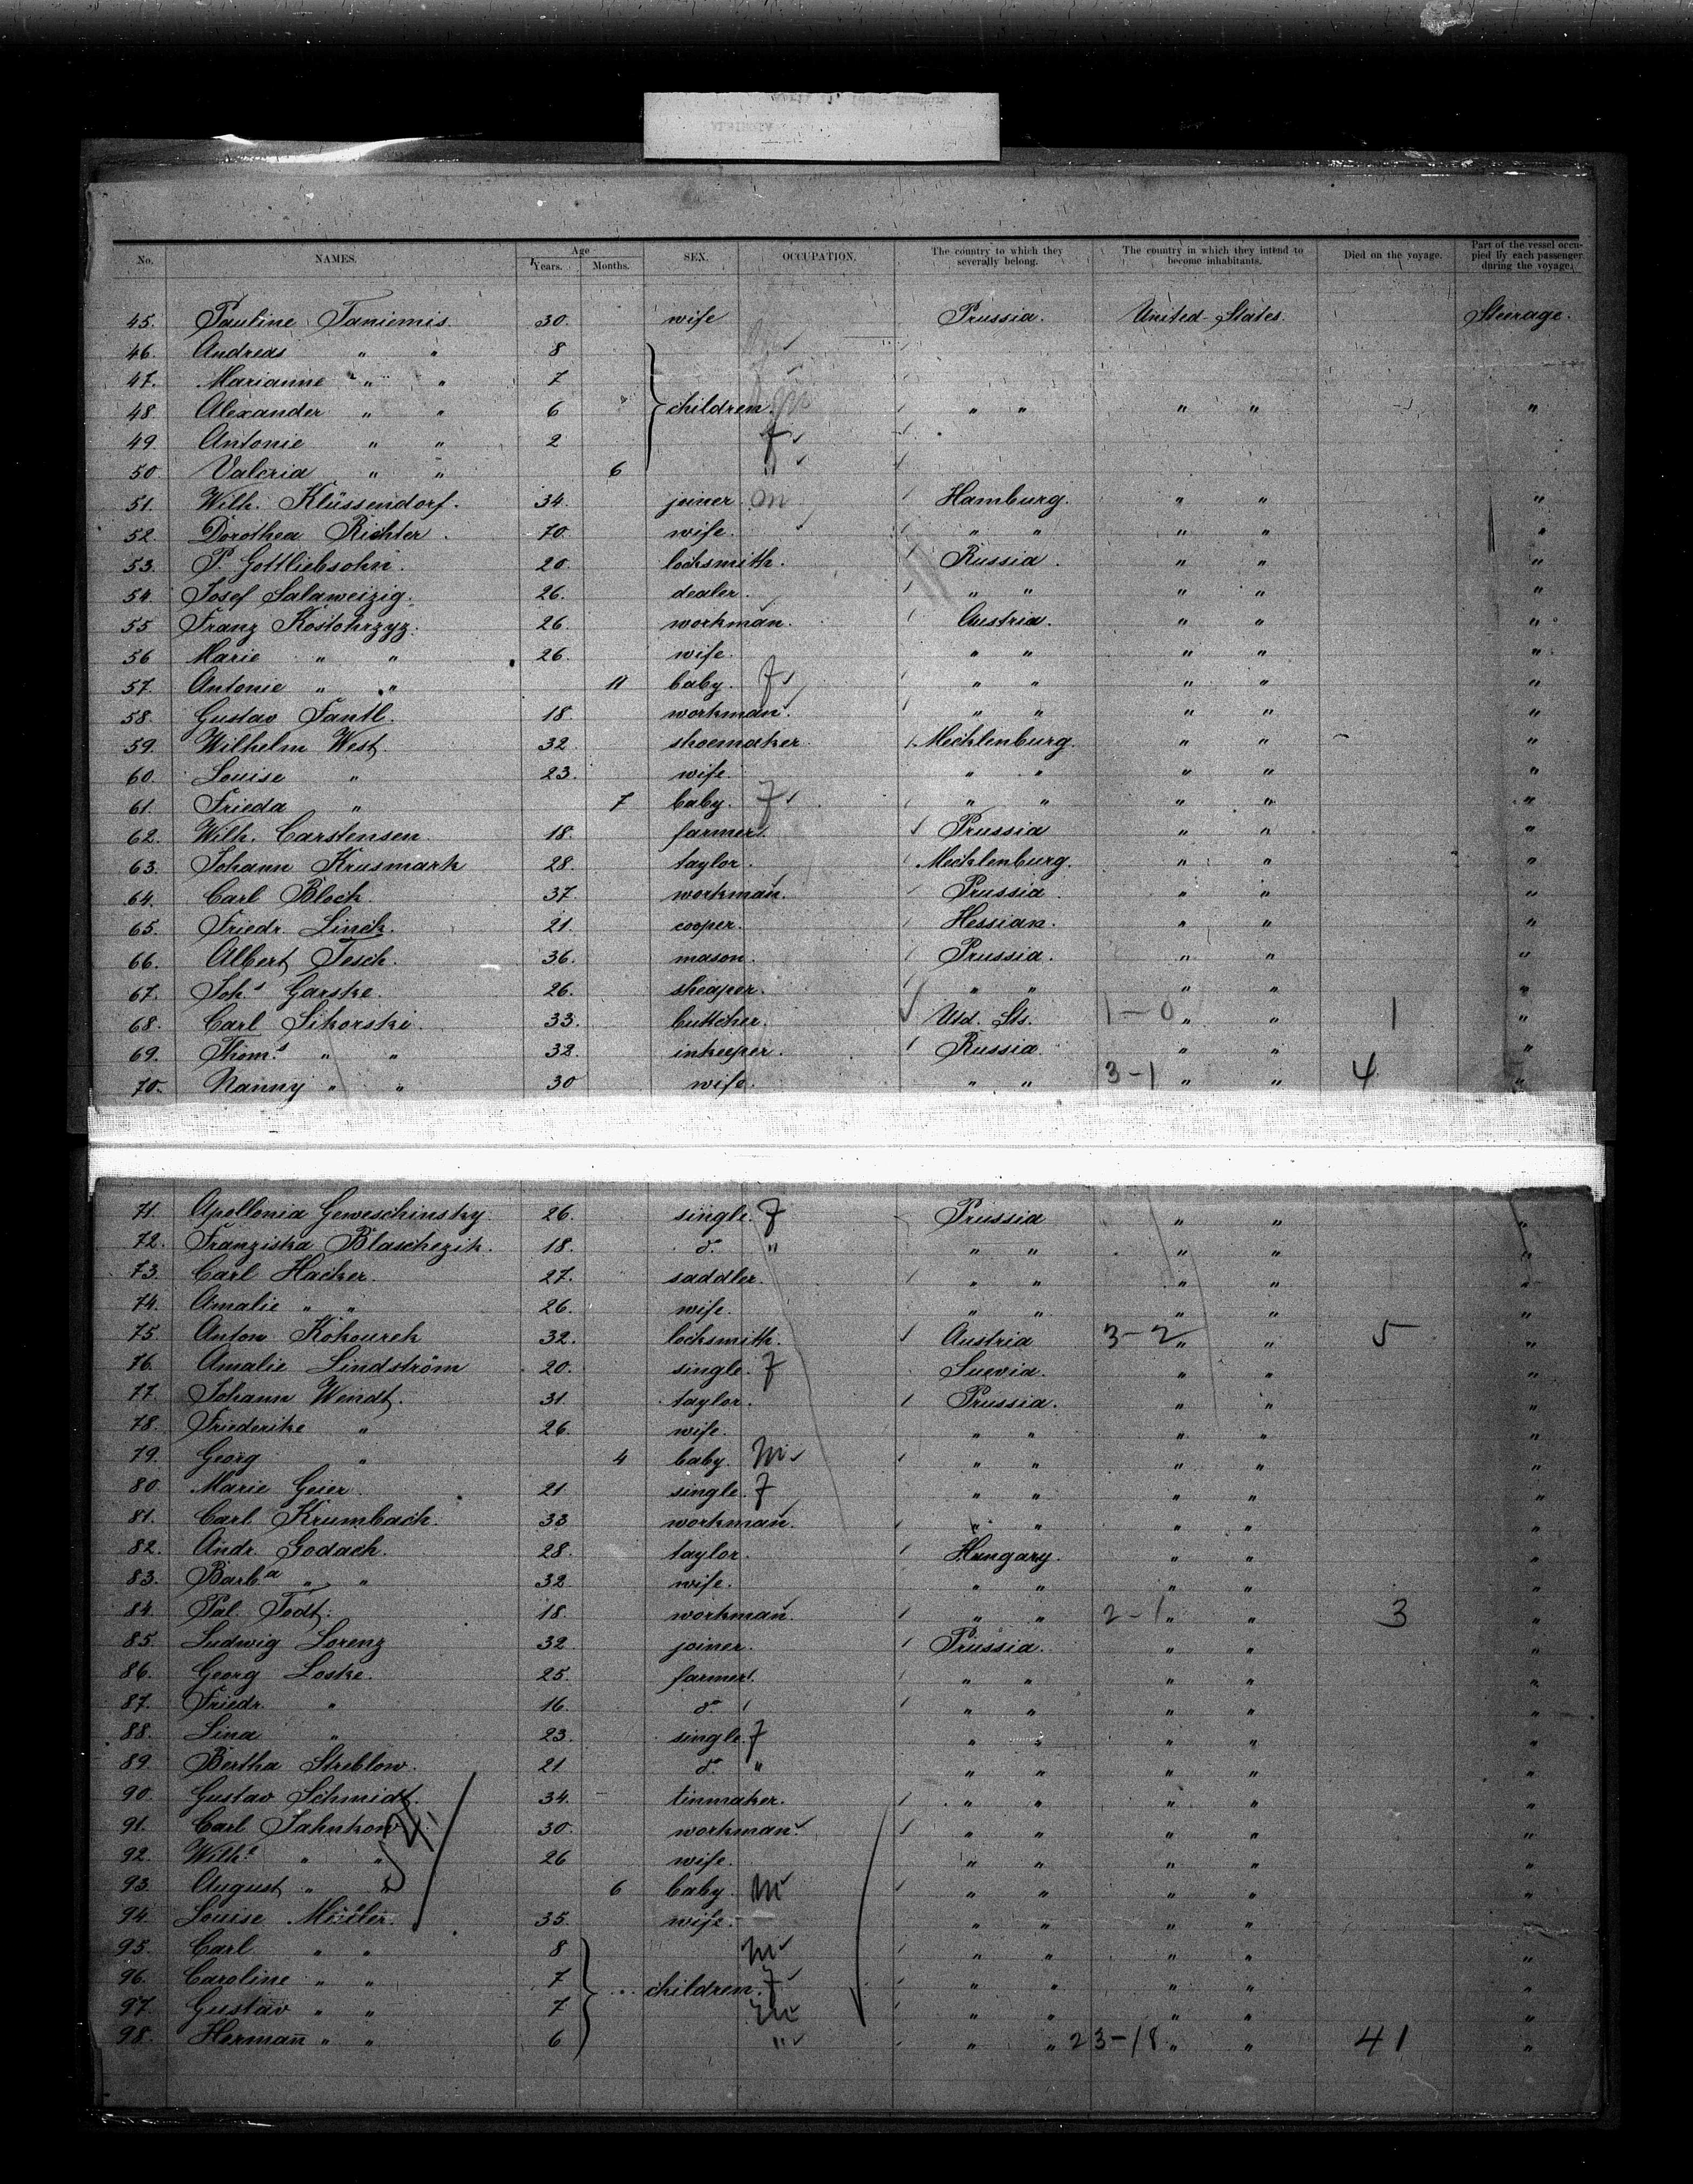 No. NAMES. Age Years. Months. SEX. OCCUPATION. The country to which they severally belong. The country in which they intend to become inhabitants. Died on the voyage. Part of the vessel occupied by each passenger during the voyage.
45. Pauline Taniemis. 30. wife Prussia. United States. Steerage.
46. Andreas " " 8
47. Marianne " " 7
48. Alexander " " 6 children. m " " " " "
49. Antonie " " 2 f
50. Valeria " " 6 "
51. Wilh. Klüssendorf. 34. joiner m Hamburg. " " "
52. Dorothea Richter. 70. wife. " " " " "
53. P. Gottliebsohn. 20. locksmith. Russia. " " "
54. Josef Salaweizig. 26. dealer. " " " " "
55 Franz Kostohrzyz. 26. workman. Austria. " " "
56 Marie " " 26. wife. " " " " "
57. Antonie " " 11 baby. f " " " " "
58. Gustav Fantl. 18. workman. " " " " "
59. Wilhelm West 32. shoemaker. Mecklenburg. " " "
60. Louise " 23. wife. " " " " "
61. Frieda " 7 baby. f " " " " "
62. Wilh. Carstensen. 18. farmer. Prussia " " "
63. Johann Krusmark 28. taylor. Mecklenburg. " " "
64. Carl Block. 37. workman. Prussia. " " "
65. Friedr. Linck. 21. cooper. Hessian. " " "
66. Albert Tesch. 36. mason. Prussia. " " "
67. Johs Garske. 26. sheaper. " " " " "
68. Carl Sikorski. 33. buttcher. Utd. Sts. 1-0 " " 1 "
69. Thoms " " 32. inkeeper. Russia. " " "
70. Nanny " " 30 wife. " " 3-1 " " 4 "
71. Apollonia Geweschinsky 26. single. f Prussia " " "
72. Franziska Blaschezik. 18. do. " " " " " "
73. Carl Hacker. 27. saddler. " " " " "
74. Amalie " " 26. wife. " " " " "
75. Anton Kohourek 32. locksmith. Austria 3-2 " " 5 "
76. Amalie Lindström 20. single. f Suevia. " " "
77. Johann Wendt. 31. taylor. Prussia. " " "
78. Friederike " 26. wife. " " " " "
79. Georg " 4 baby. m " " " " "
80. Marie Geier. 21 single. f " " " " "
81. Carl Krumbach. 33 workman. " " " " "
82. Andr. Godach. 28. taylor. Hungary. " " "
83. Barba " " 32 wife. " " " " "
84. Pal. Todt. 18. workman. " " 2-1 " " 3 "
85. Ludwig Lorenz 32 joiner. Prussia. " " "
86. Georg Loske. 25. farmer. " " " " "
87. Friedr. " 16. do. " " " " "
88. Lina " 23. single. f " " " " "
89. Bertha Streblow. 21 do. " " " " " "
90. Gustav Schmidt. 34. tinmaker. " " " " "
91. Carl Jahnkow 30. workman. " " " " "
92. Wilhe " " 26 wife. " " " " "
93. August " " 6 baby. m " " " " "
94. Louise Müller. 35. wife. " " " " "
95. Carl " " 8 m " " " " "
96. Caroline " " 7 children. f " " " " "
97. Gustav " " 7 m " " " " "
98. Hermann " " 6 " " " 23-18 " " 41 "